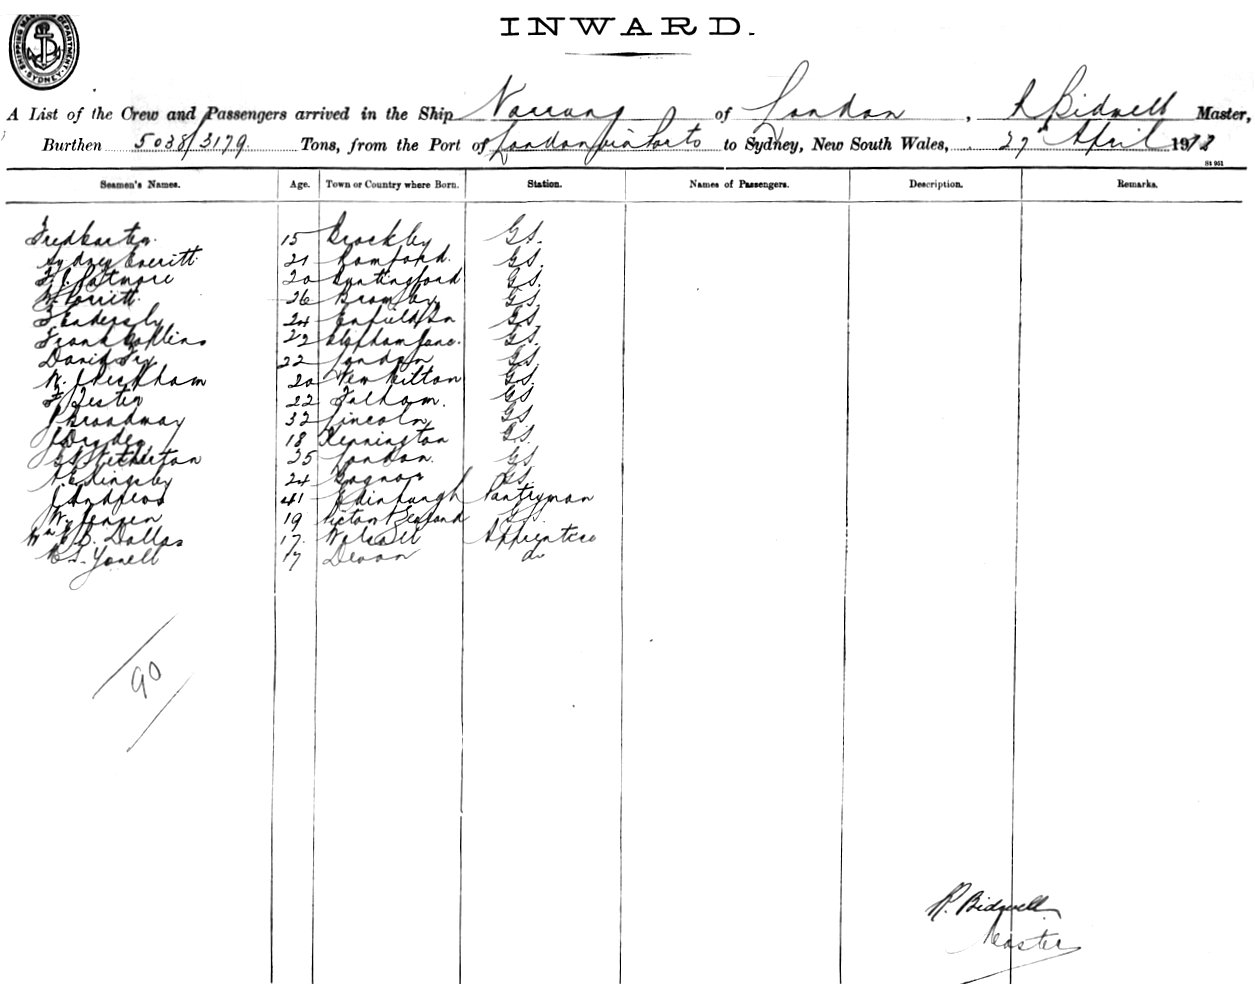 SHIPPING MASTER'S DEPARTMENT SYDNEY
INWARD.
A List of the Crew and Passengers arrived in the Ship Narrung of London, R Bidwell Master,
Burthen 5038/3179 Tons, from the Port of London via Ports to Sydney, New South Wales, 27th April 1912
St 961
Seamen's Names. Age. Town or Country where Born. Station. Names of Passengers. Description. Remarks.
Fred Carter 15 Brockley G.S.
Sydney Everitt 21 Romford. G.S.
F.J. Patmore 20 Buntingford G.S.
W. 26 Bromley G.S.
F Endersby 24 Enfield G.S.
Frank Collins 22 G.S.
David Fry 22 London G.S.
W. J Peckham 20 New Milton G.S.
F. Lester 22 Fulham. G.S.
J Broadway 32 Lincoln G.S.
J Dryden 18 Kennington G.S.
25 London. G.S.
A E Kingsley 24 Bognor G.S.
J Andrews 41 Edinburgh Pantryman
W. Jensen 19 Victoria G.S.
Wm Dallas 17 Walsall Apprentice
Yonell 17 Devon do
90
R. Bidwell
Master